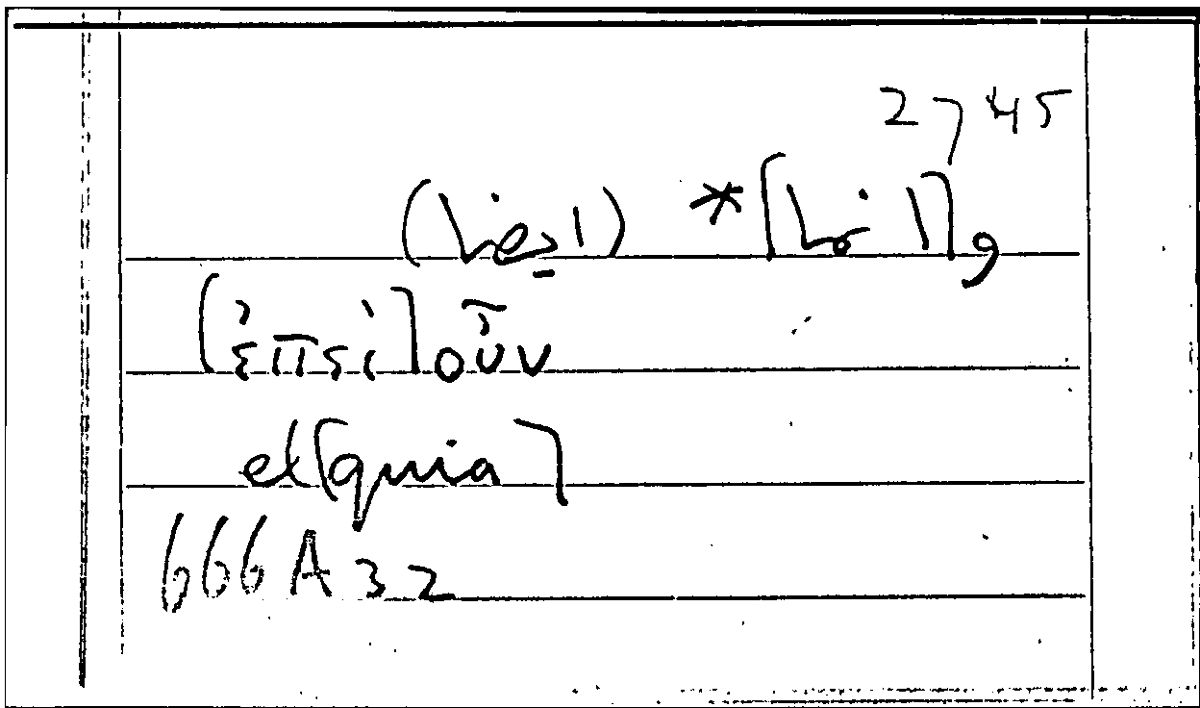 2745
و[انما]*
[ἐπεὶ] οὖν
et [quia]
666 A 32